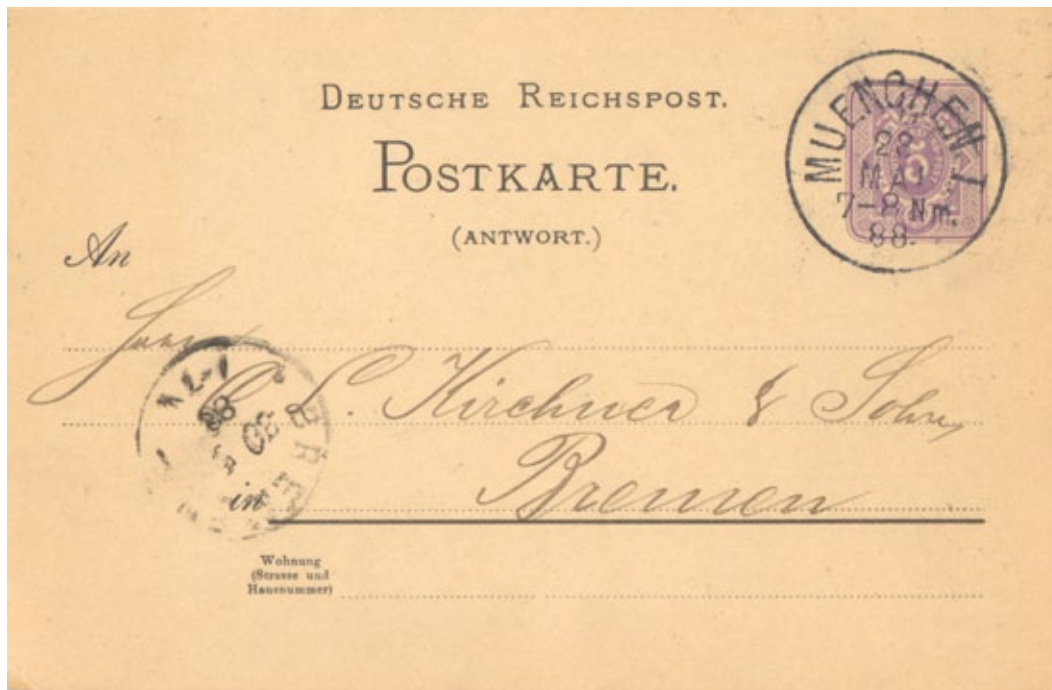 DEUTSCHE REICHSPOST.
POSTKARTE.
(ANTWORT.)
MUENCHEN I
MAI
7-8 Nm.
88.
An
Herrn
C. L. Kirchner & Sohn,
BREMEN
in Bremen
Wohnung
(Strasse und
Hausnummer)